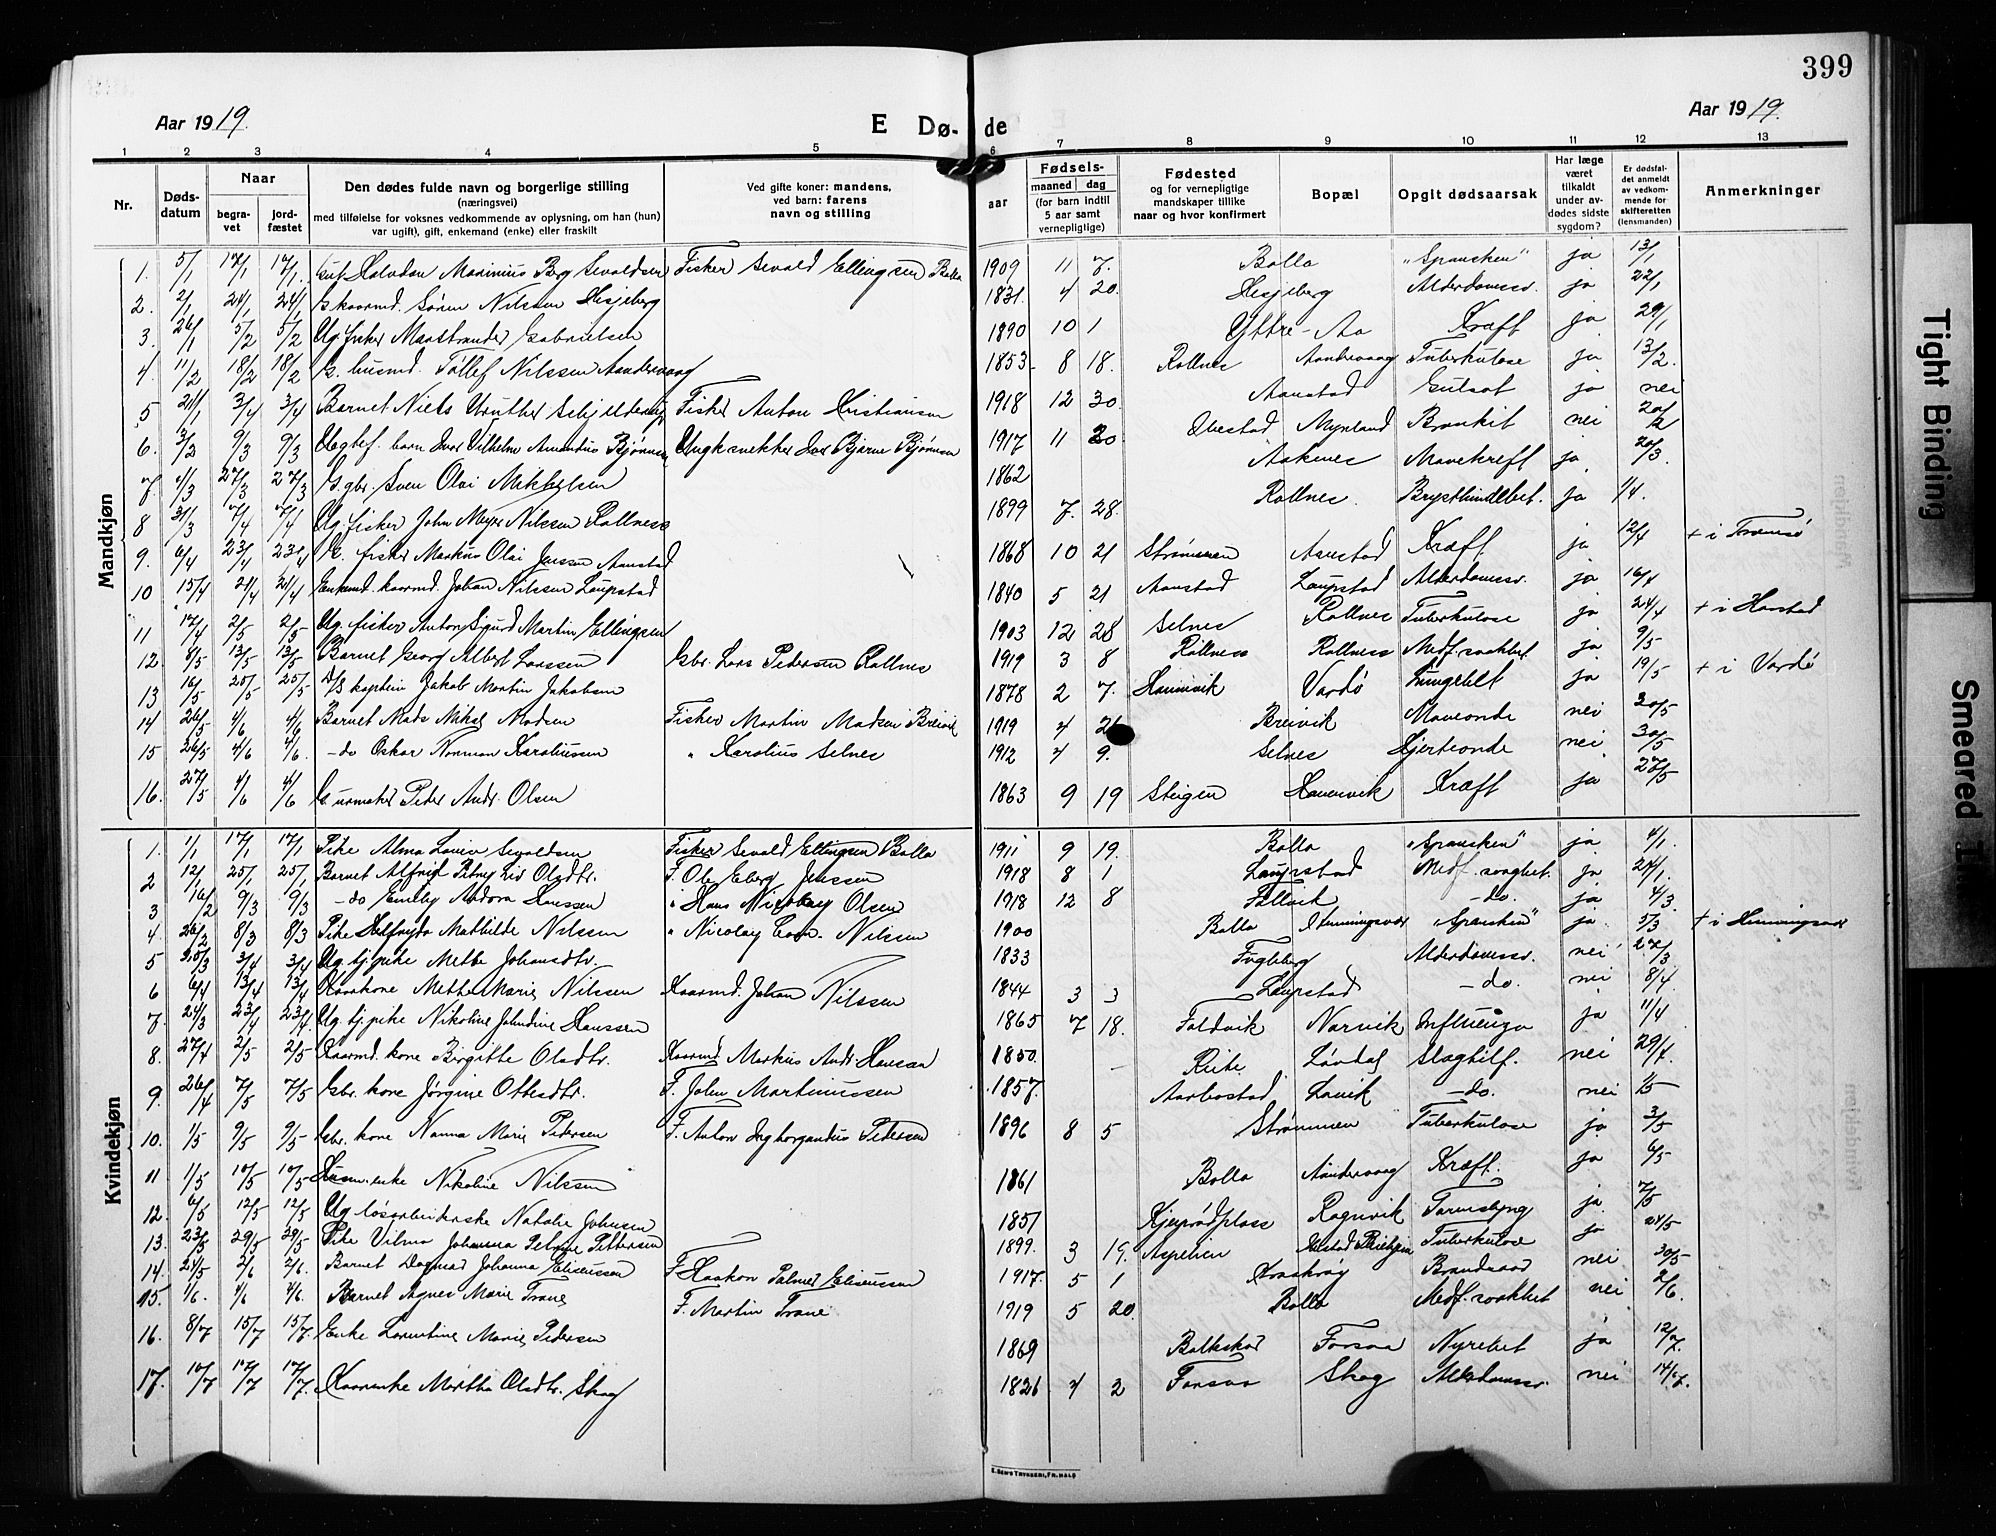 399
Aar 1919.
E Dø- de
Aar 1919.
1 2 3 4 5 6 7 8 9 10 11 12 13
Nr.
Døds-
datum
Naar
begra-
vet
jord-
fæstet
Den dødes fulde navn og borgerlige stilling
(næringsvei)
med tilføielse for voksnes vedkommende av oplysning, om han (hun)
var ugift), gift, enkemand (enke) eller fraskilt
Ved gifte koner: mandens,
ved barn: farens
navn og stilling
aar
Fødsels-
maaned dag
(for barn indtil
5 aar samt
vernepligtige)
Fødested
og for vernepligtige
mandskaper tillike
naar og hvor konfirmert
Bopæl
Opgit dødsaarsak
Har læge
været
tilkaldt
under av-
dødes sidste
sygdom?
Er dødsfal-
det anmeldt
av vedkom-
mende for-
skifteretten
(lensmanden)
Anmerkninger
Mandkjøn
1. 5/1 17/1 17/1. Gut Halvdan Marinius Berg Sevaldsen Fisker Sevald Ellingsen Bolla 1909 11 7. Bolla "Spansken" ja 13/1
2. 2/1 24/1 24/1 G. kaarmd. Søren Nilssen Hesjeberg 1831. 4 20. Hesjeberg Alderdomssv. ja 22/1
3. 26/1 5/2 5/2 Ug. fisker Marstrander Gabrielsen 1890 10 1 Yttre-Aa Kræft ja 29/1
4. 11/2 18/2 18/2 G. husmd. Tollef Nilssen Aandervaag 1853 8 18. Rollnes Aandervaag Tuberkulose ja 13/2.
5 21/1 3/4 3/4 Barnet Niels Fisker Anton Kristiansen 1918 12 30. Aanstad Gulsot ja nei
6. 3/2 9/3 9/3 Uegtef. barn Ivar Vilhelm Amandus Bjørnsen Ungk. snekker Ivar Bjarne Bjørnsen 1917 11 20. Obestad Myrland Bronkit nei 20/2
7. 4/3 27/3 27/3 G. gbr. Sven Olai Mekkelsen 1862 Aaknes Mavekreft ja 20/3.
8 31/3 7/4 7/4 Ug. fisker John Meyer Nilssen Rollnes 1899 7. 28. Rollnes. Brysthindebet. ja 1/4.
9. 6/4 23/4 23/4 G. fisker Markus Olai Jenssen Aanstad 1868 10 21 Strømmen Aanstad Kræft ja 12/4 + i Tromsø
10 15/4 24/4 24/4 Enkemd. kaarmd. Johan Nilssen Laupstad 1840 5 21 Aanstad Laupstad Alderdomssv. ja 16/4
11 17/4 2/5 2/5 Ug. fisker Anton Sigurd Martin Ellingsen 1903 12 28 Selnes Rollnes Tuberkulose ja 24/4 + i Harstad
12 8/5 13/5 13/5 Barnet Georg Albert Larssen Gbr. Lars Pedersen Rollnes 1919 3 8 Rollnes Rollnes Medf. svakhet ja 9/5
13 16/5 25/5 25/5 D/S kaptein Jakob Martin Jakobsen 1878 2 7. Hamnvik Vardø Lungebet ja 19/5 + i Vardø
14 26/5 4/6 4/6 Barnet Mads Mikal Madsen Fisker Martin Madsen Breivik 1919 4 Breivik Maveonde nei 20/5
15 26/5 4/6 4/6. -do Oskar Norman Karoliussen " Karolius Selnes 1912 4 9. Selnes Hjerteonde nei 30/5
16. 27/5 4/6 4/6 G. urmaker Peder Andr. Olsen 1863 9 19 Steigen Hamnvik Kræft ja 27/5
Kvindekjøn
1. 1/1 17/1 17/1 Pike Alma Lovise Sevaldsen Fisker Sevald Ellingsen Bolla 1911 9 19. Bolla "Spansken" ja 4/1.
2 12/1 25/1 25/1 Barnet Alfhild Petra Liv Olsdtr. F. Ole Eberg Jenssen 1918 8 1 Laupstad Medf. svaghet ja 24/1.
3 16/2 9/3 9/3 -do Emeley Andora Hanssen " Hans Nicolay Olsen 1918 12 8 Follvik -do. ja 4/3.
4. 26/2 8/3 8/3 Pike Helfryda Mathilde Nilssen " Nicolay Nilssen 1900 Bolla Henningsvær "Spansken" ja 5/3 + i Henningsvær
5 25/3 3/4 3/4 Ug. tj.pike Mette Johansdtr. 1833 Fugleberg Alderdomssv. nei 27/3
6 6/4 13/4 13/4 Kaarkone Mette Marie Nilssen Kaarmd. Johan Nilssen 1844 3 3 Laupstad -do. nei 8/4
7. 24/3 23/4 23/4. Ug. tj.pike Nikoline Johndine Hanssen 1865 7 18. Foldvik Narvik Influenza ja 11/4
8. 27/4 2/5 2/5 Kaarmd. kone Birgitte Olsdtr. Kaarmd. Markus Andr. Hansen 1850. Løvdal Slagtilf. nei 29/4.
9. 26/4 7/5 7/5 Gbr. kone Jørgine Ottesdtr. F. John Martinussen 1857. Aarbostad Lavik -do. nei 1/5
10. 1/5 9/5 9/5 Gbr. kone Nanna Marie Pedersen F. Anton Ingborgandus Pedersen 1896 8 5 Strømmen Tuberkulose ja 3/5
11 1/5 10/5 10/5 Husm.enke Nikoline Nilssen 1861 Bolla Aandervaag Kræft. ja 6/5
12. 6/5 12/5 12/5 Ug. løsarbeiderske Natalie Johnsen 1851 Kjerrødplass Rognvik Tarmslyng ja 7/5
13. 23/5 29/5 29/5 Pike Vilma Johanna Peline Pettersen 1899. 3 19. Aspelien Tuberkulose ja 24/5
14. 24/5 2/6 2/6. Barnet Dagmar Johanna Eliseussen F. Haakon Palmer Eliseussen 1917. 5 1 Kraakrøy Brandsaar nei 30/5
15. 1/6. 4/6 4/6. Barnet Agnes Marie Trane F. Martin Trane 1919 5 20. Bolla Medf. svakhet nei 2/6.
16. 8/7 15/7 15/7. Enke Lorentine Marie Pedersen 1869 Balteskar Forsaa Nyrebet ja 12/7.
17. 10/7 17/7 17/7. Kaarenke Martha Olsdtr. Skog 1826 4 2 Forsaa Skog Alderdomssv. nei 14/7.
E. SEM'S TRYKKERI, FR.HALD
Tight Binding
Smeared I